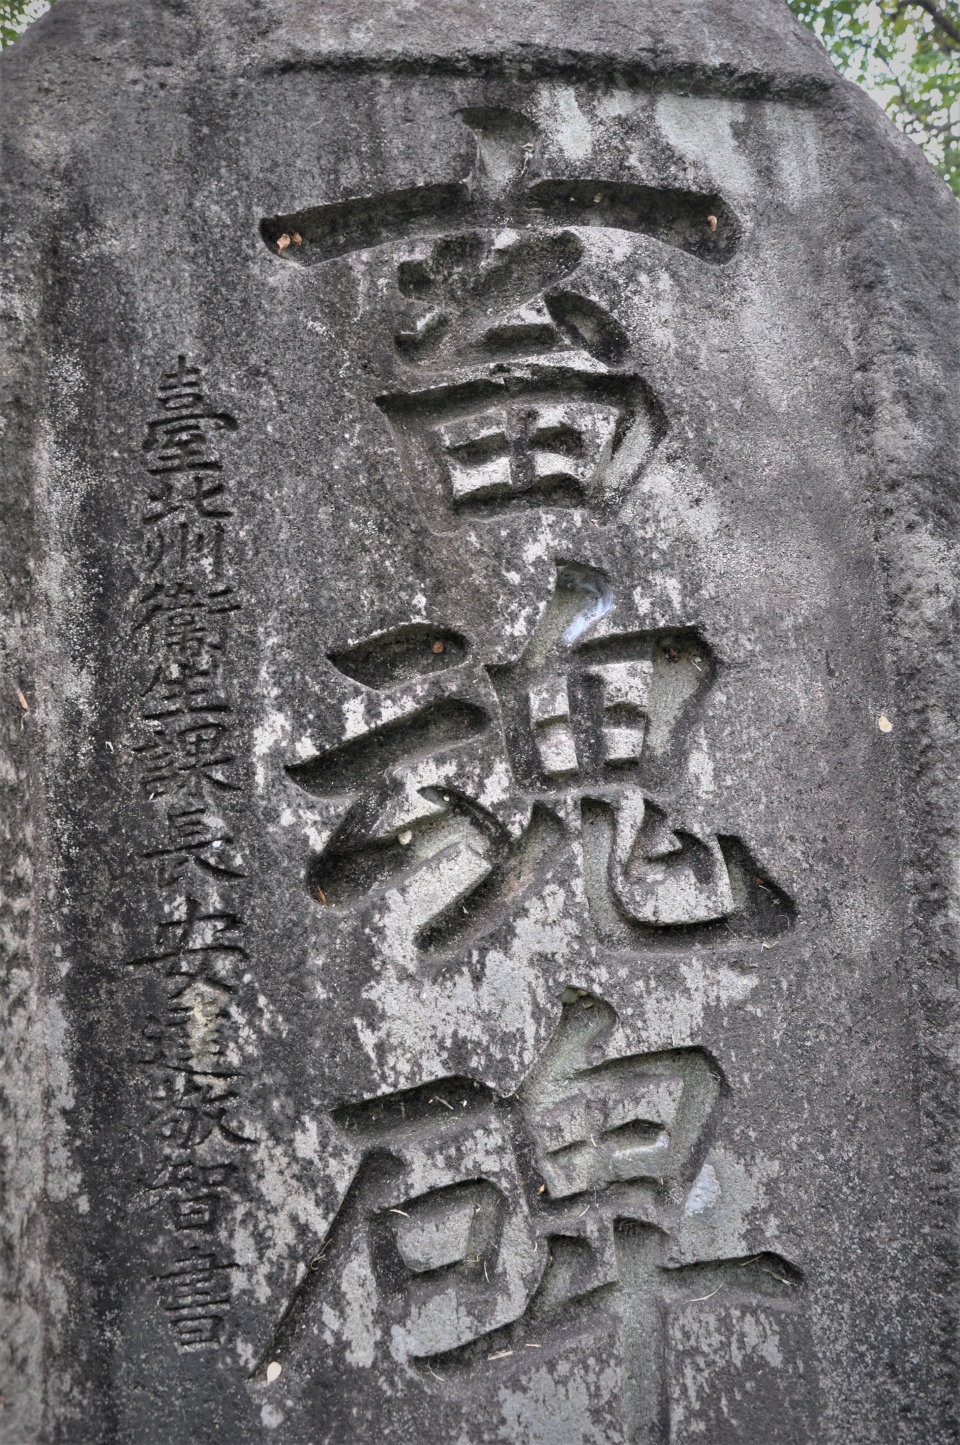 畜魂碑
臺北州衛生課長安達敬智書